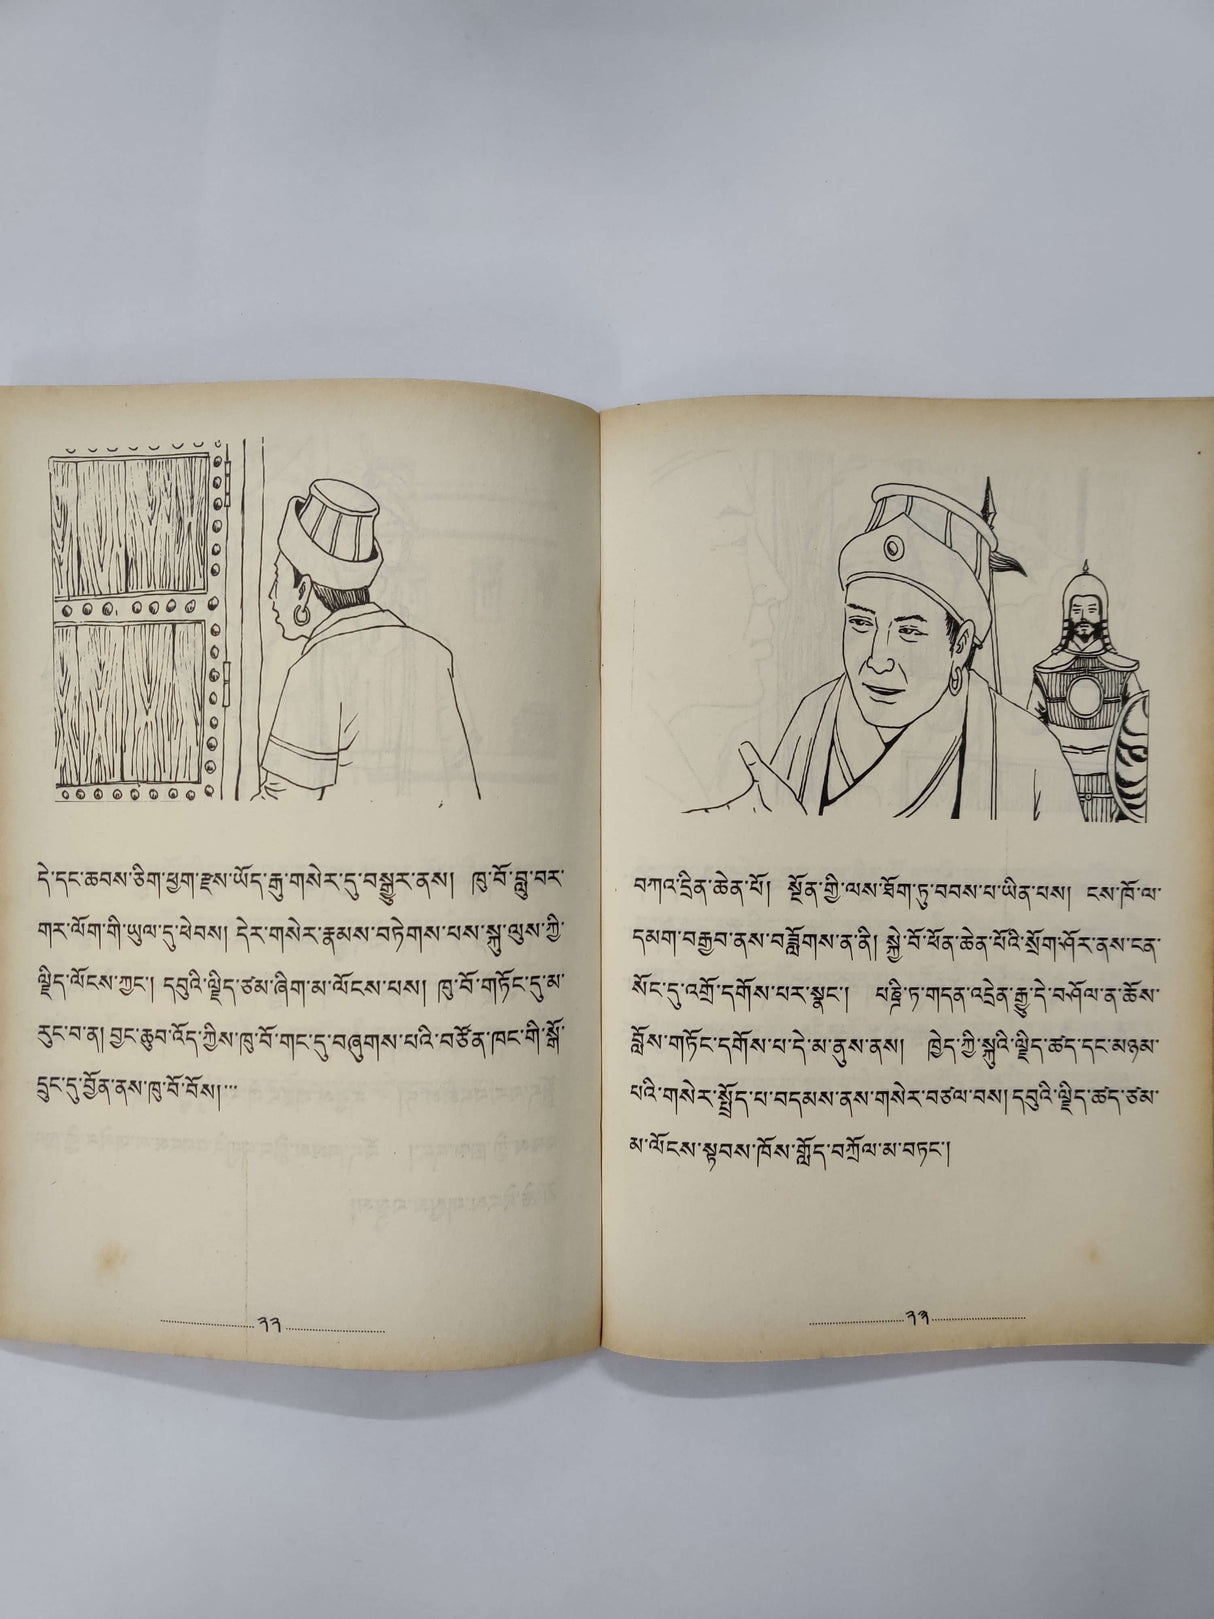 དེ་དང་ཆབས་ཅིག་ཕྱག་རྫས་ཡོད་རྒུ་གསེར་དུ་བསྒྱུར་ནས། ཁུ་བོ་བླུ་བར་
གར་ལོག་གི་ཡུལ་དུ་ཕེབས། དེར་གསེར་རྣམས་བཏེགས་པས་སྐུ་ལུས་ཀྱི་
ལྗིད་ལོངས་ཀྱང་། དབུའི་ལྗིད་ཙམ་ཞིག་མ་ལོངས་པས། ཁུ་བོ་གཏོང་དུ་མ་
རུང་བ་ན། བྱང་ཆུབ་འོད་ཀྱིས་ཁུ་བོ་གང་དུ་བཞུགས་པའི་བཙོན་ཁང་གི་སྒོ་
དྲུང་དུ་བྱོན་ནས་ཁུ་བོ་བོས། ...
༢༢
བཀའ་དྲིན་ཆེན་པོ། སྔོན་གྱི་ལས་ཐོག་ཏུ་བབས་པ་ཡིན་པས། ངས་ཁོ་ལ་
དམག་བརྒྱབ་ནས་བཟློགས་ན་ནི། སྐྱེ་བོ་ཕོན་ཆེན་པོའི་སྲོག་ཤོར་ནས་ངན་
སོང་དུ་འགྲོ་དགོས་པར་སྣང་། པཎྜི་ཏ་གདན་འདྲེན་རྒྱུ་དེ་བཤོལ་ན་ཆོས་
བློས་གཏོང་དགོས་པ་དེ་མ་ནུས་ནས། ཁྱེད་ཀྱི་སྐུའི་ལྗིད་ཚད་དང་མཉམ་
པའི་གསེར་སྤྲོད་པ་བདམས་ནས་གསེར་བཙལ་བས། དབུའི་ལྗིད་ཚད་ཙམ་
མ་ལོངས་སྟབས་ཁོས་གློད་བཀྲོལ་མ་བཏང་།
༢༣